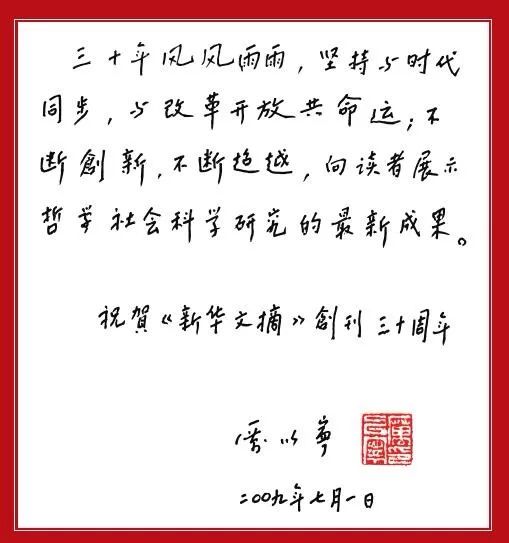 三十年风风雨雨，坚持与时代
同步，与改革开放共命运；不
断創新，不断超越，向读者展示
哲学社会科学研究的最新成果。
祝賀《新华文摘》創刊三十周年
厉以寧
二〇〇九年七月一日